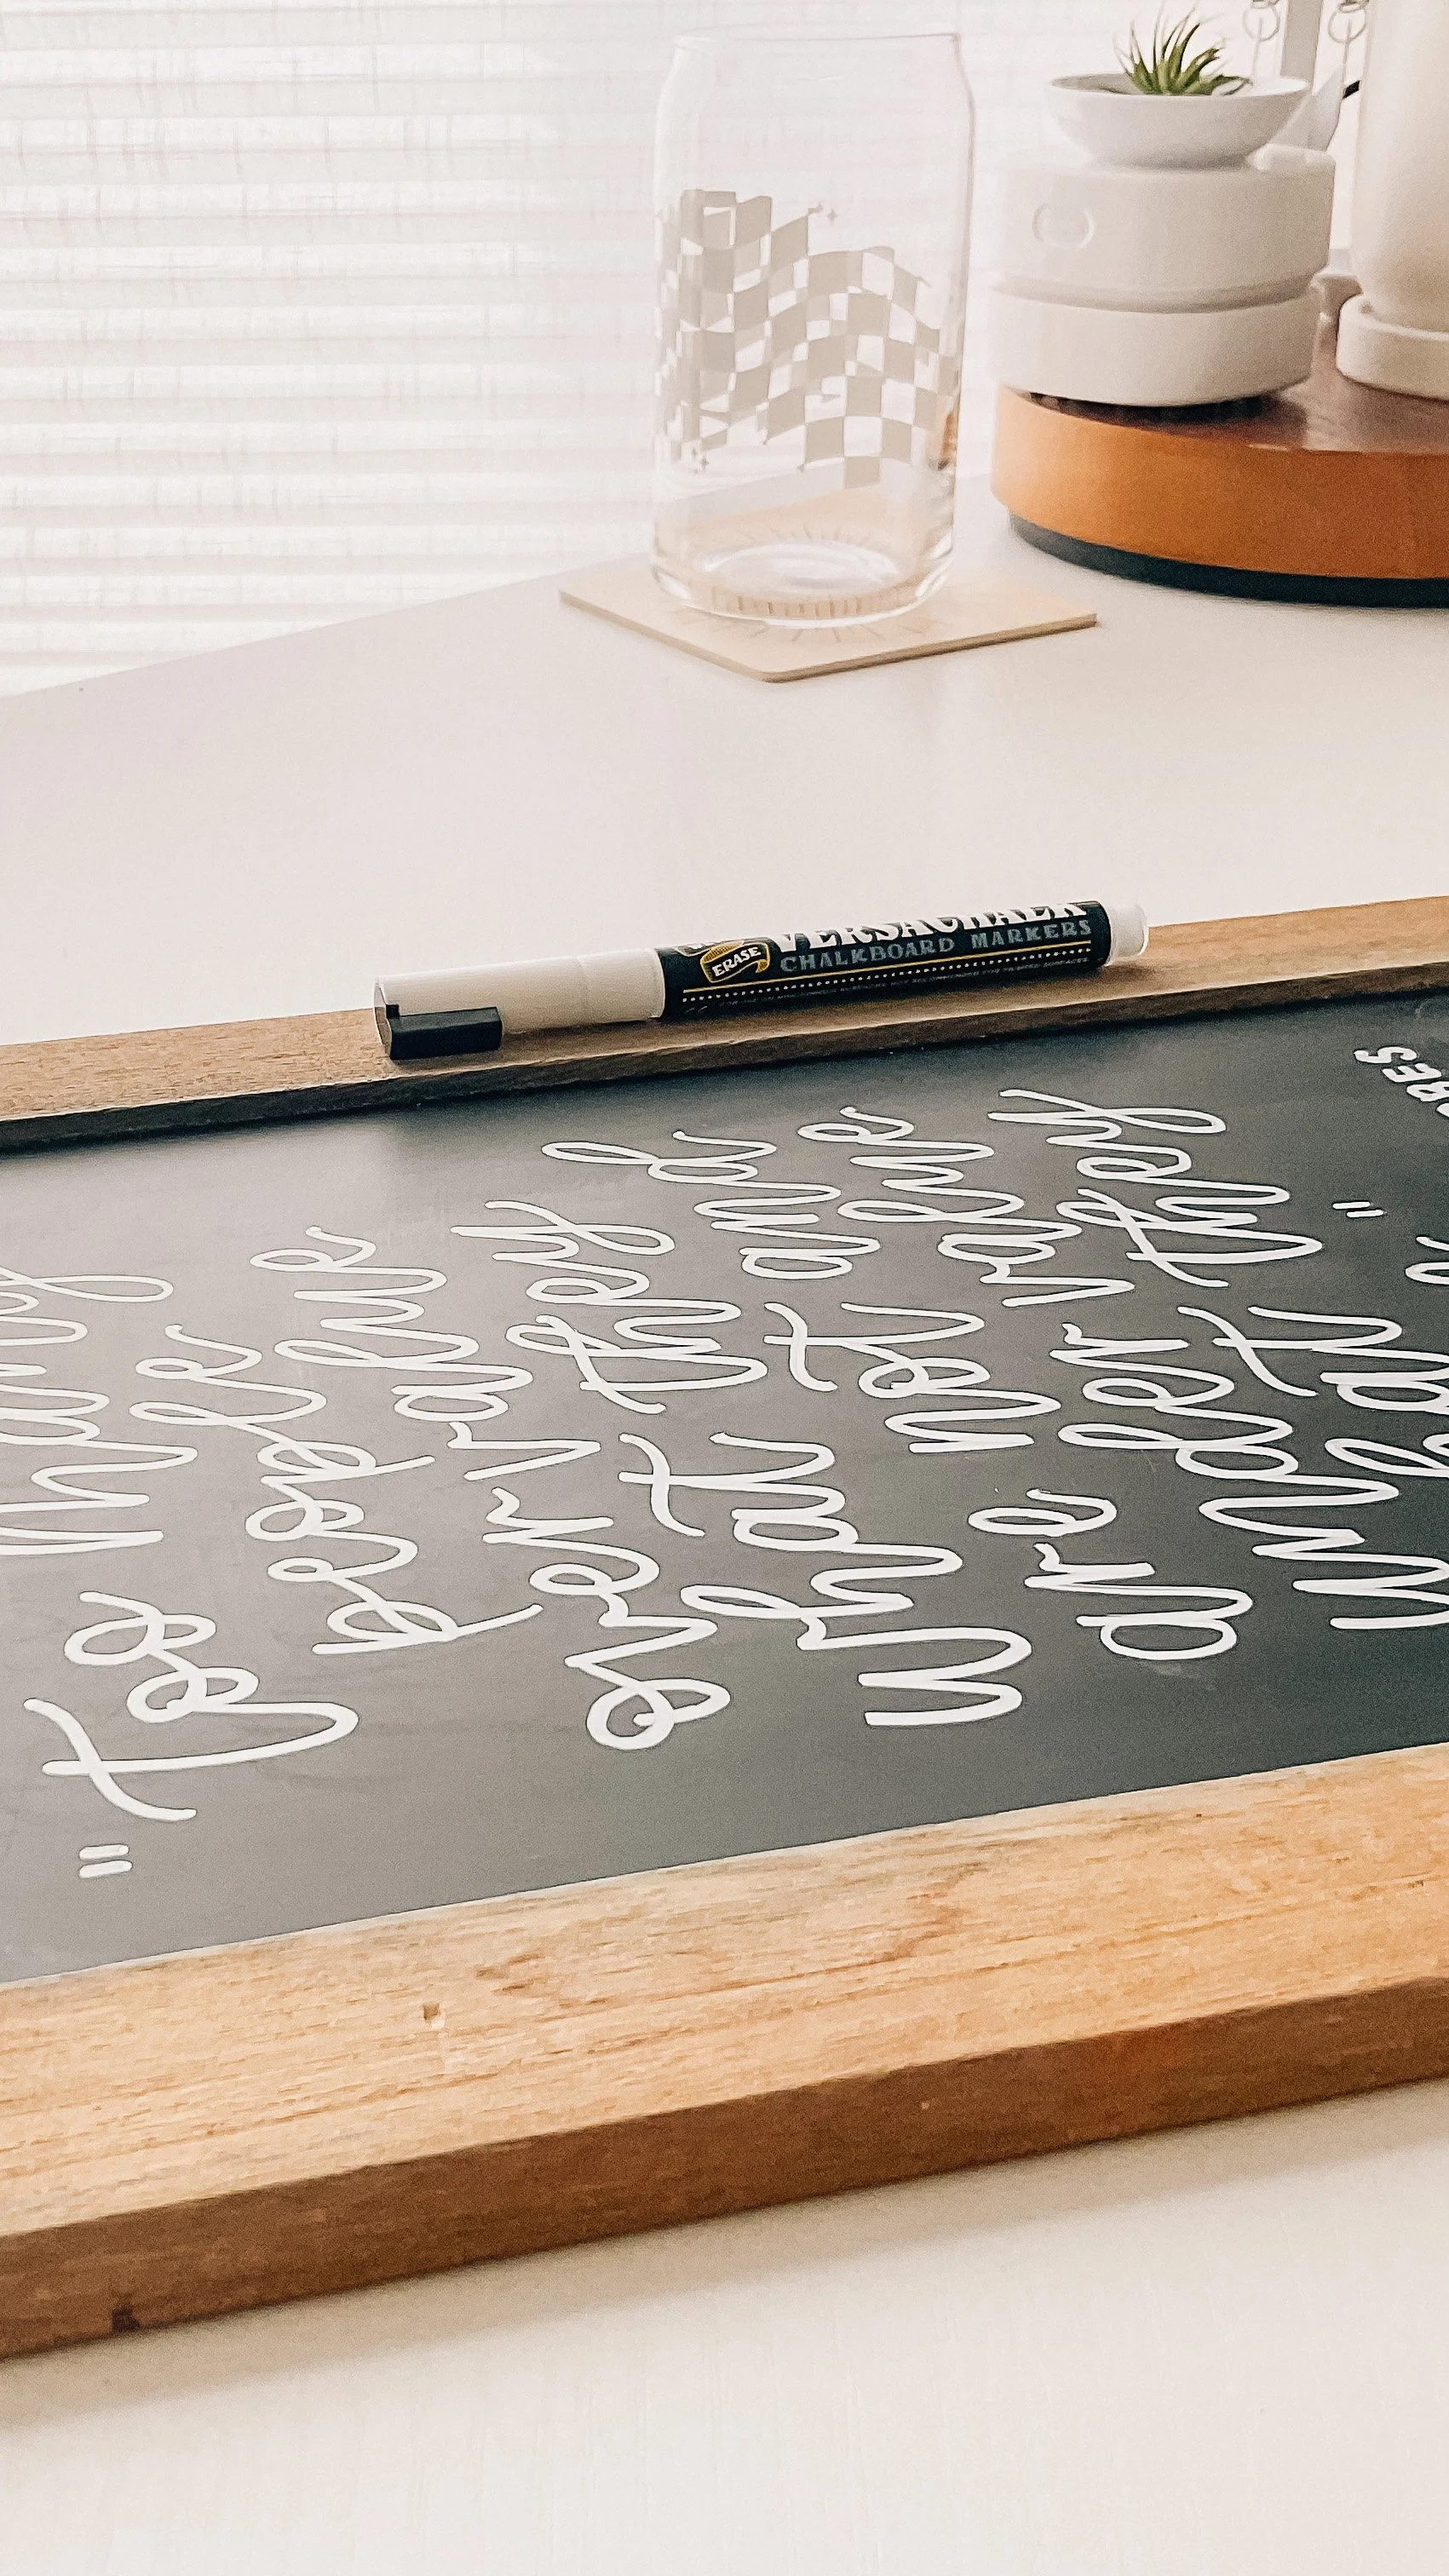 "Too many
people
overvalue
what they
are not and
undervalue
hat they
"
BES
ERASE
VERSACHALK
CHALKBOARD MARKERS